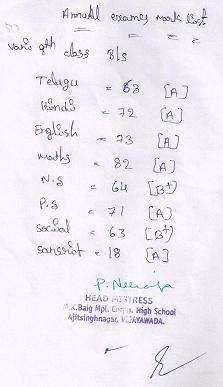 Annual exames mark list
9th class B/s
Telugu = 83 [A]
Hindi = 72 [A]
English = 73 [A]
maths = 82 [A]
N.S = 64 [B+]
P.S = 71 [A]
social = 63 [B+]
sanssriot = 18 [A]
P. Neeraja
HEAD MISTRESS
M.K.Baig Mpl. Corpn. High School
Ajitsinghnagar, VIJAYAWADA.